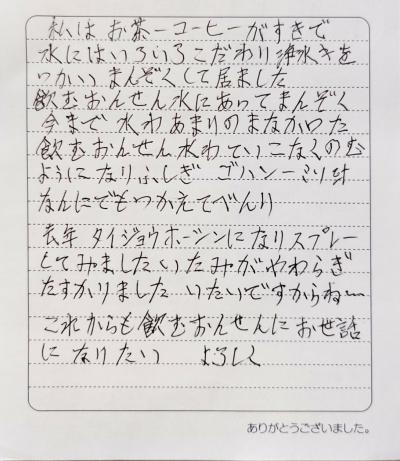 私は お茶ーコーヒーがすきで
水にはいろいろこだわり浄水きを
つかいまんぞくして居ました
飲むおんせん水にあってまんぞく
今まで 水わあまりのまなかった
飲むおんせん水わていこなくのむ
ようになりふしぎ ゴハンーミソ汁
なんにでもつかえてべんり
去年 タイジョウホーシンになりスプレー
してみました いたみがやわらぎ
たすかりました いたいですからねー
これからも飲むおんせんにお世話
に なりたい よろしく
ありがとうございました。